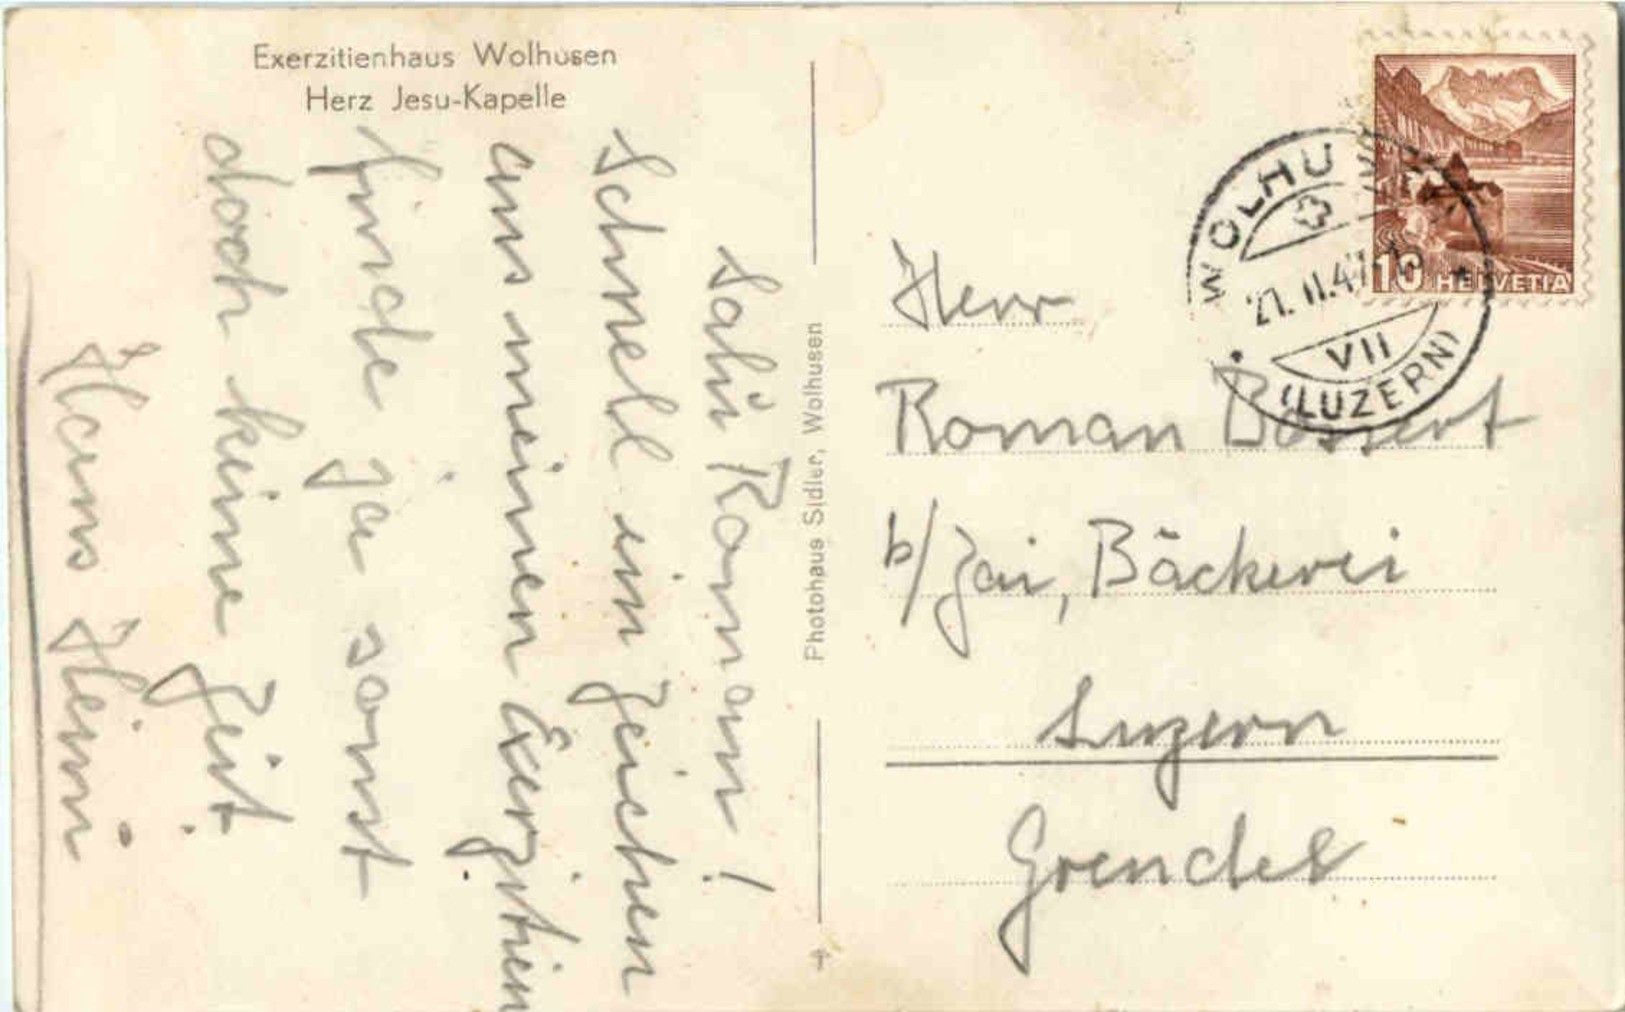 Exerzitienhaus Wolhusen
Herz Jesu-Kapelle
Salü Roman!
Schnell ein Zeichen
aus meinen Exerzitien
finde ja sonst
doch keine Zeit
Hans Heini
Photohaus Sidler, Wolhusen
Herr
Roman Bossert
b/Zai, Bäckerei
Luzern
Grendel
WOLHUSEN
21. II. 47
VII
(LUZERN)
10 HELVETIA